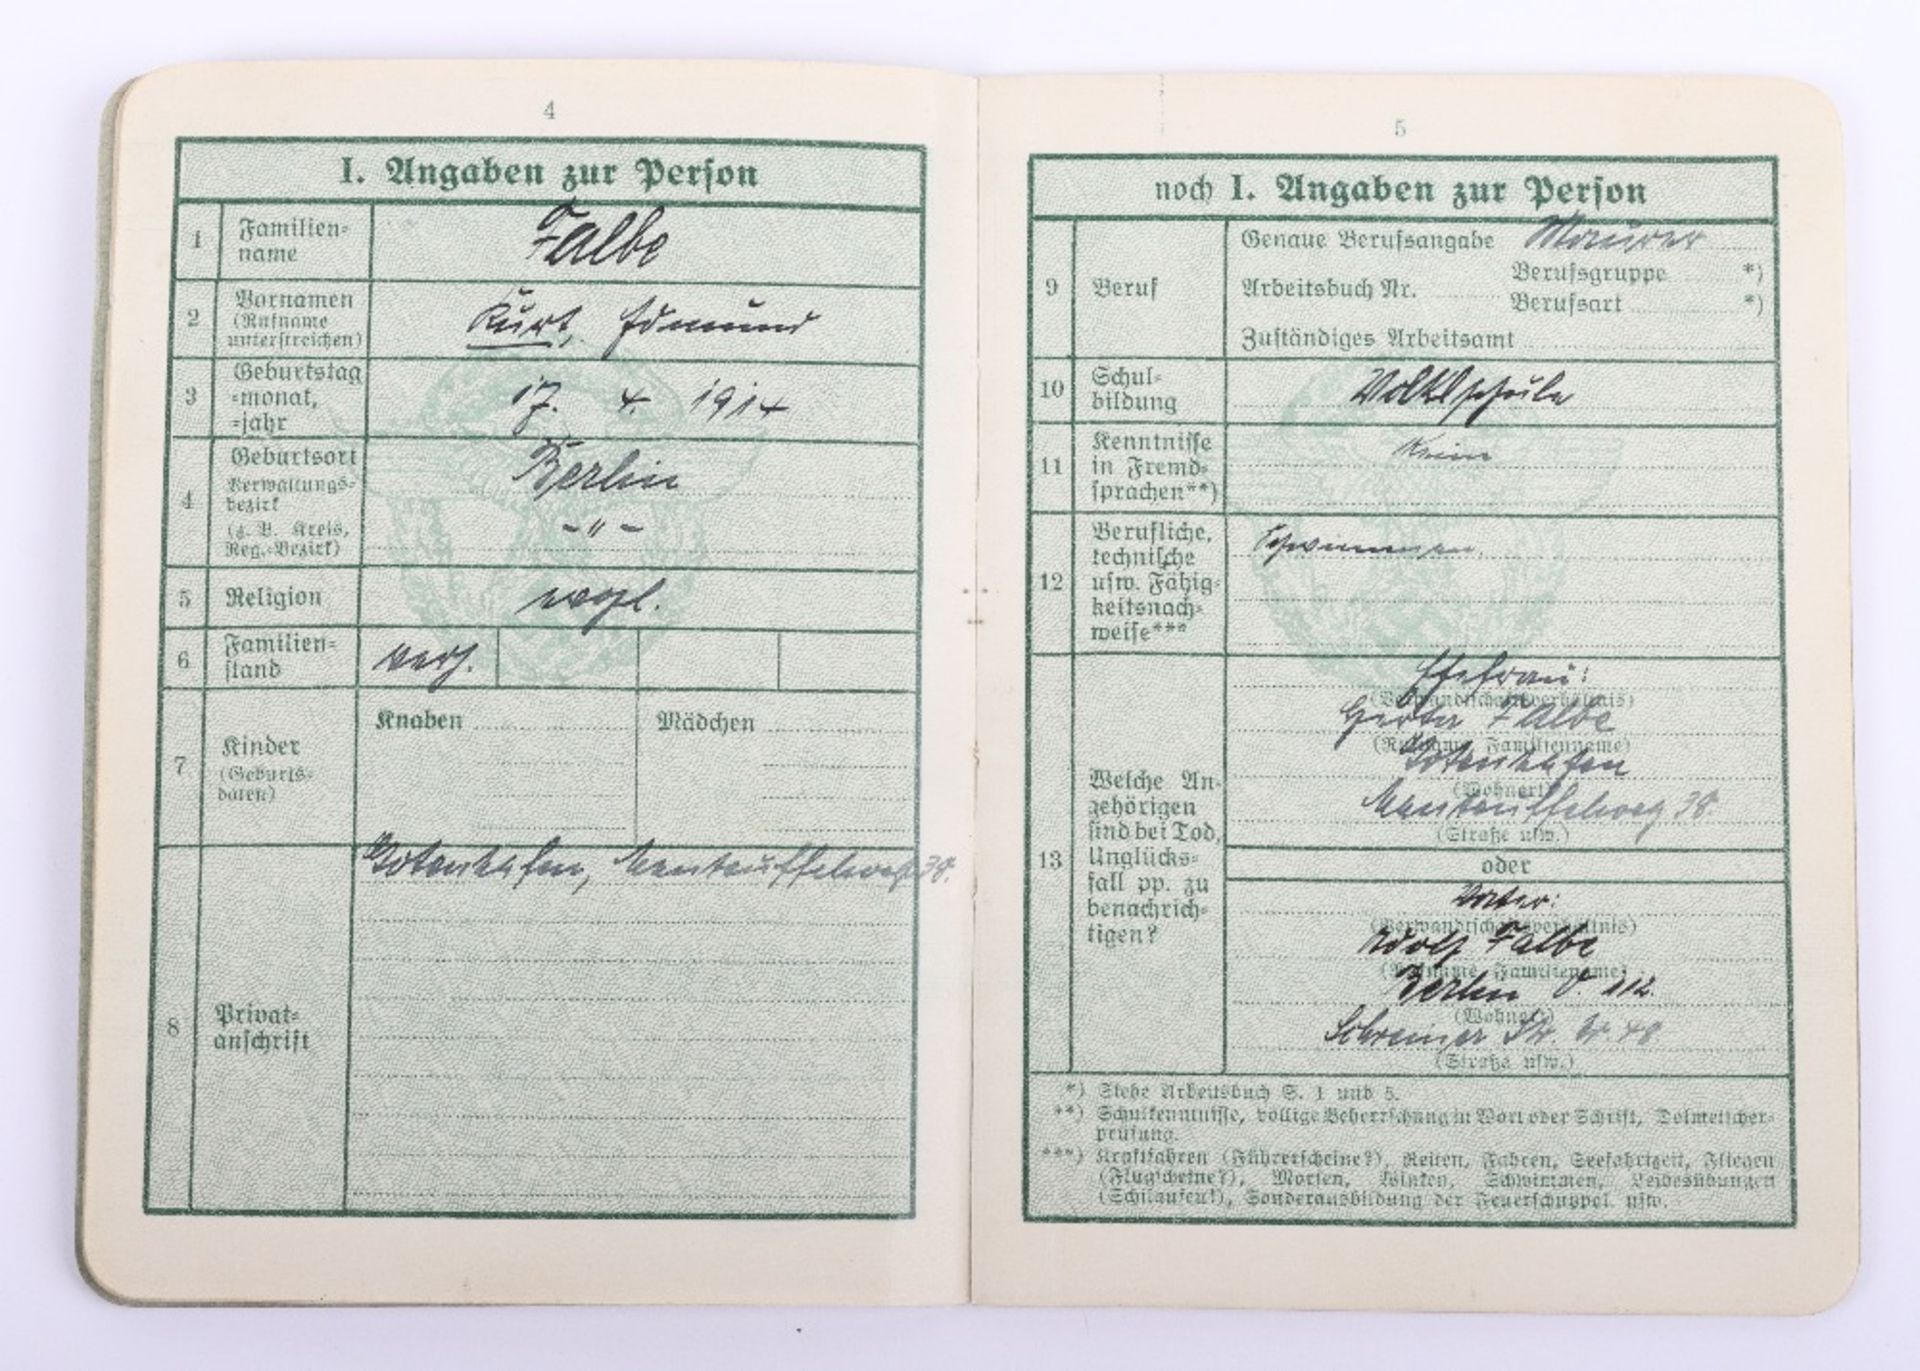 4
I. Angaben zur Person
1 Familien-
name
Falbe
2 Vornamen
(Rufname
unterstreichen)
Kurt, Edmund
3 Geburtstag
-monat,
-jahr
17. 4. 1914
4 Geburtsort
Verwaltungs-
bezirk
(z. B. Kreis,
Reg.-Bezirk)
Berlin
- " -
5 Religion
evgl.
6 Familien-
stand
verh.
7 Kinder
(Geburts-
daten)
Knaben
Mädchen
8 Privat-
anschrift
Gotenhafen, Manteuffelweg 38.
5
noch I. Angaben zur Person
9 Beruf
Genaue Berufsangabe Maurer
Berufsgruppe *)
Arbeitsbuch Nr.
Berufsart *)
Zuständiges Arbeitsamt
10 Schul-
bildung
Volksschule
11 Kenntnisse
in Fremd-
sprachen**)
Keine
12 Berufliche,
technische
usw. Fähig-
keitsnach-
weise***
Schwimmen.
13 Welche An-
gehörigen
sind bei Tod,
Unglücks-
fall pp. zu
benachrich-
tigen?
Ehefrau:
(Verwandtschaftsverhältnis)
Falbe
(Rufname, Familienname)
Gotenhafen
(Wohnort)
Manteuffelweg 38.
(Straße usw.)
oder
Vater:
(Verwandtschaftsverhältnis)
Adolf Falbe
(Rufname, Familienname)
Berlin O 112.
(Wohnort)
Schreiner Str. Nr. 48
(Straße usw.)
*) Siehe Arbeitsbuch S. 1 und 5.
**) Schulkenntnisse, völlige Beherrschung in Wort oder Schrift, Dolmetscher-
prüfung.
***) Kraftfahren (Führerscheine?), Reiten, Fahren, Seefahrtzeit, Fliegen
(Flugscheine?), Morsen, Winken, Schwimmen, Leibesübungen
(Schilaufen!), Sonderausbildung der Feuerschutzpol. usw.